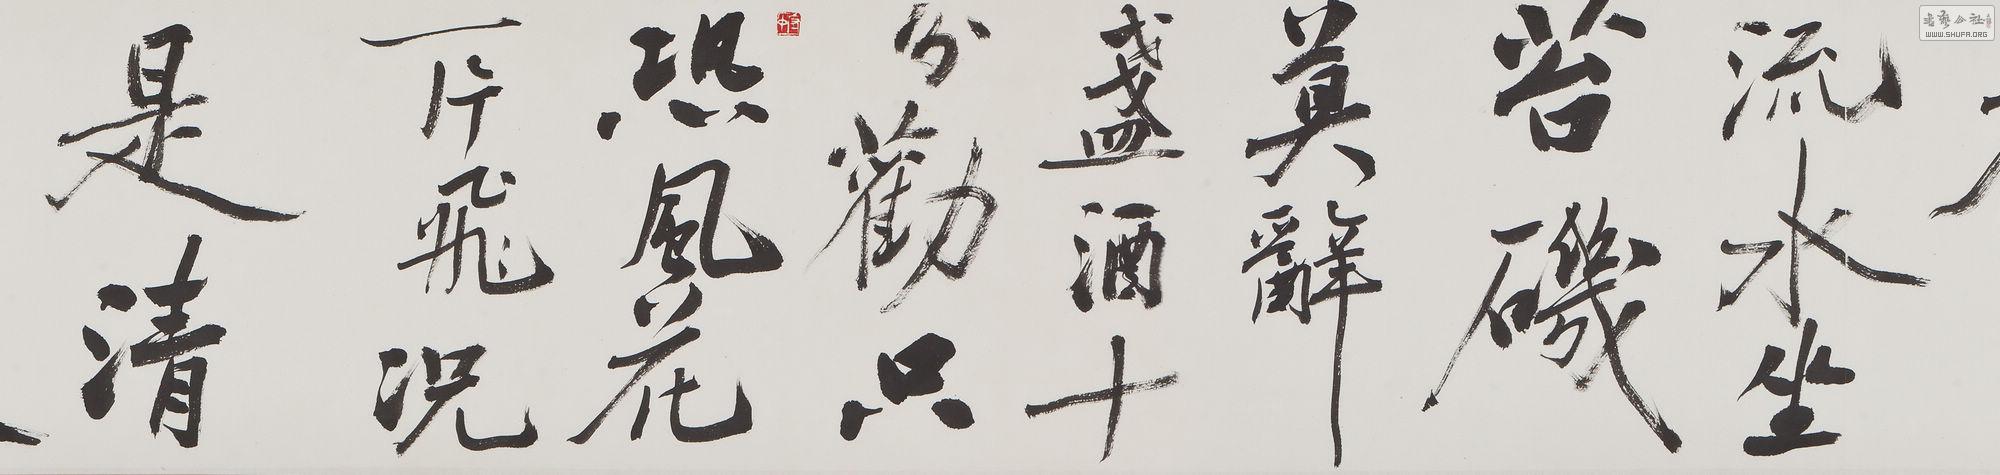 流水坐
苔磯
莫辭
盞酒十
分勸只
恐風花
一片飛況
是清
书艺公社
WWW.SHUFA.ORG